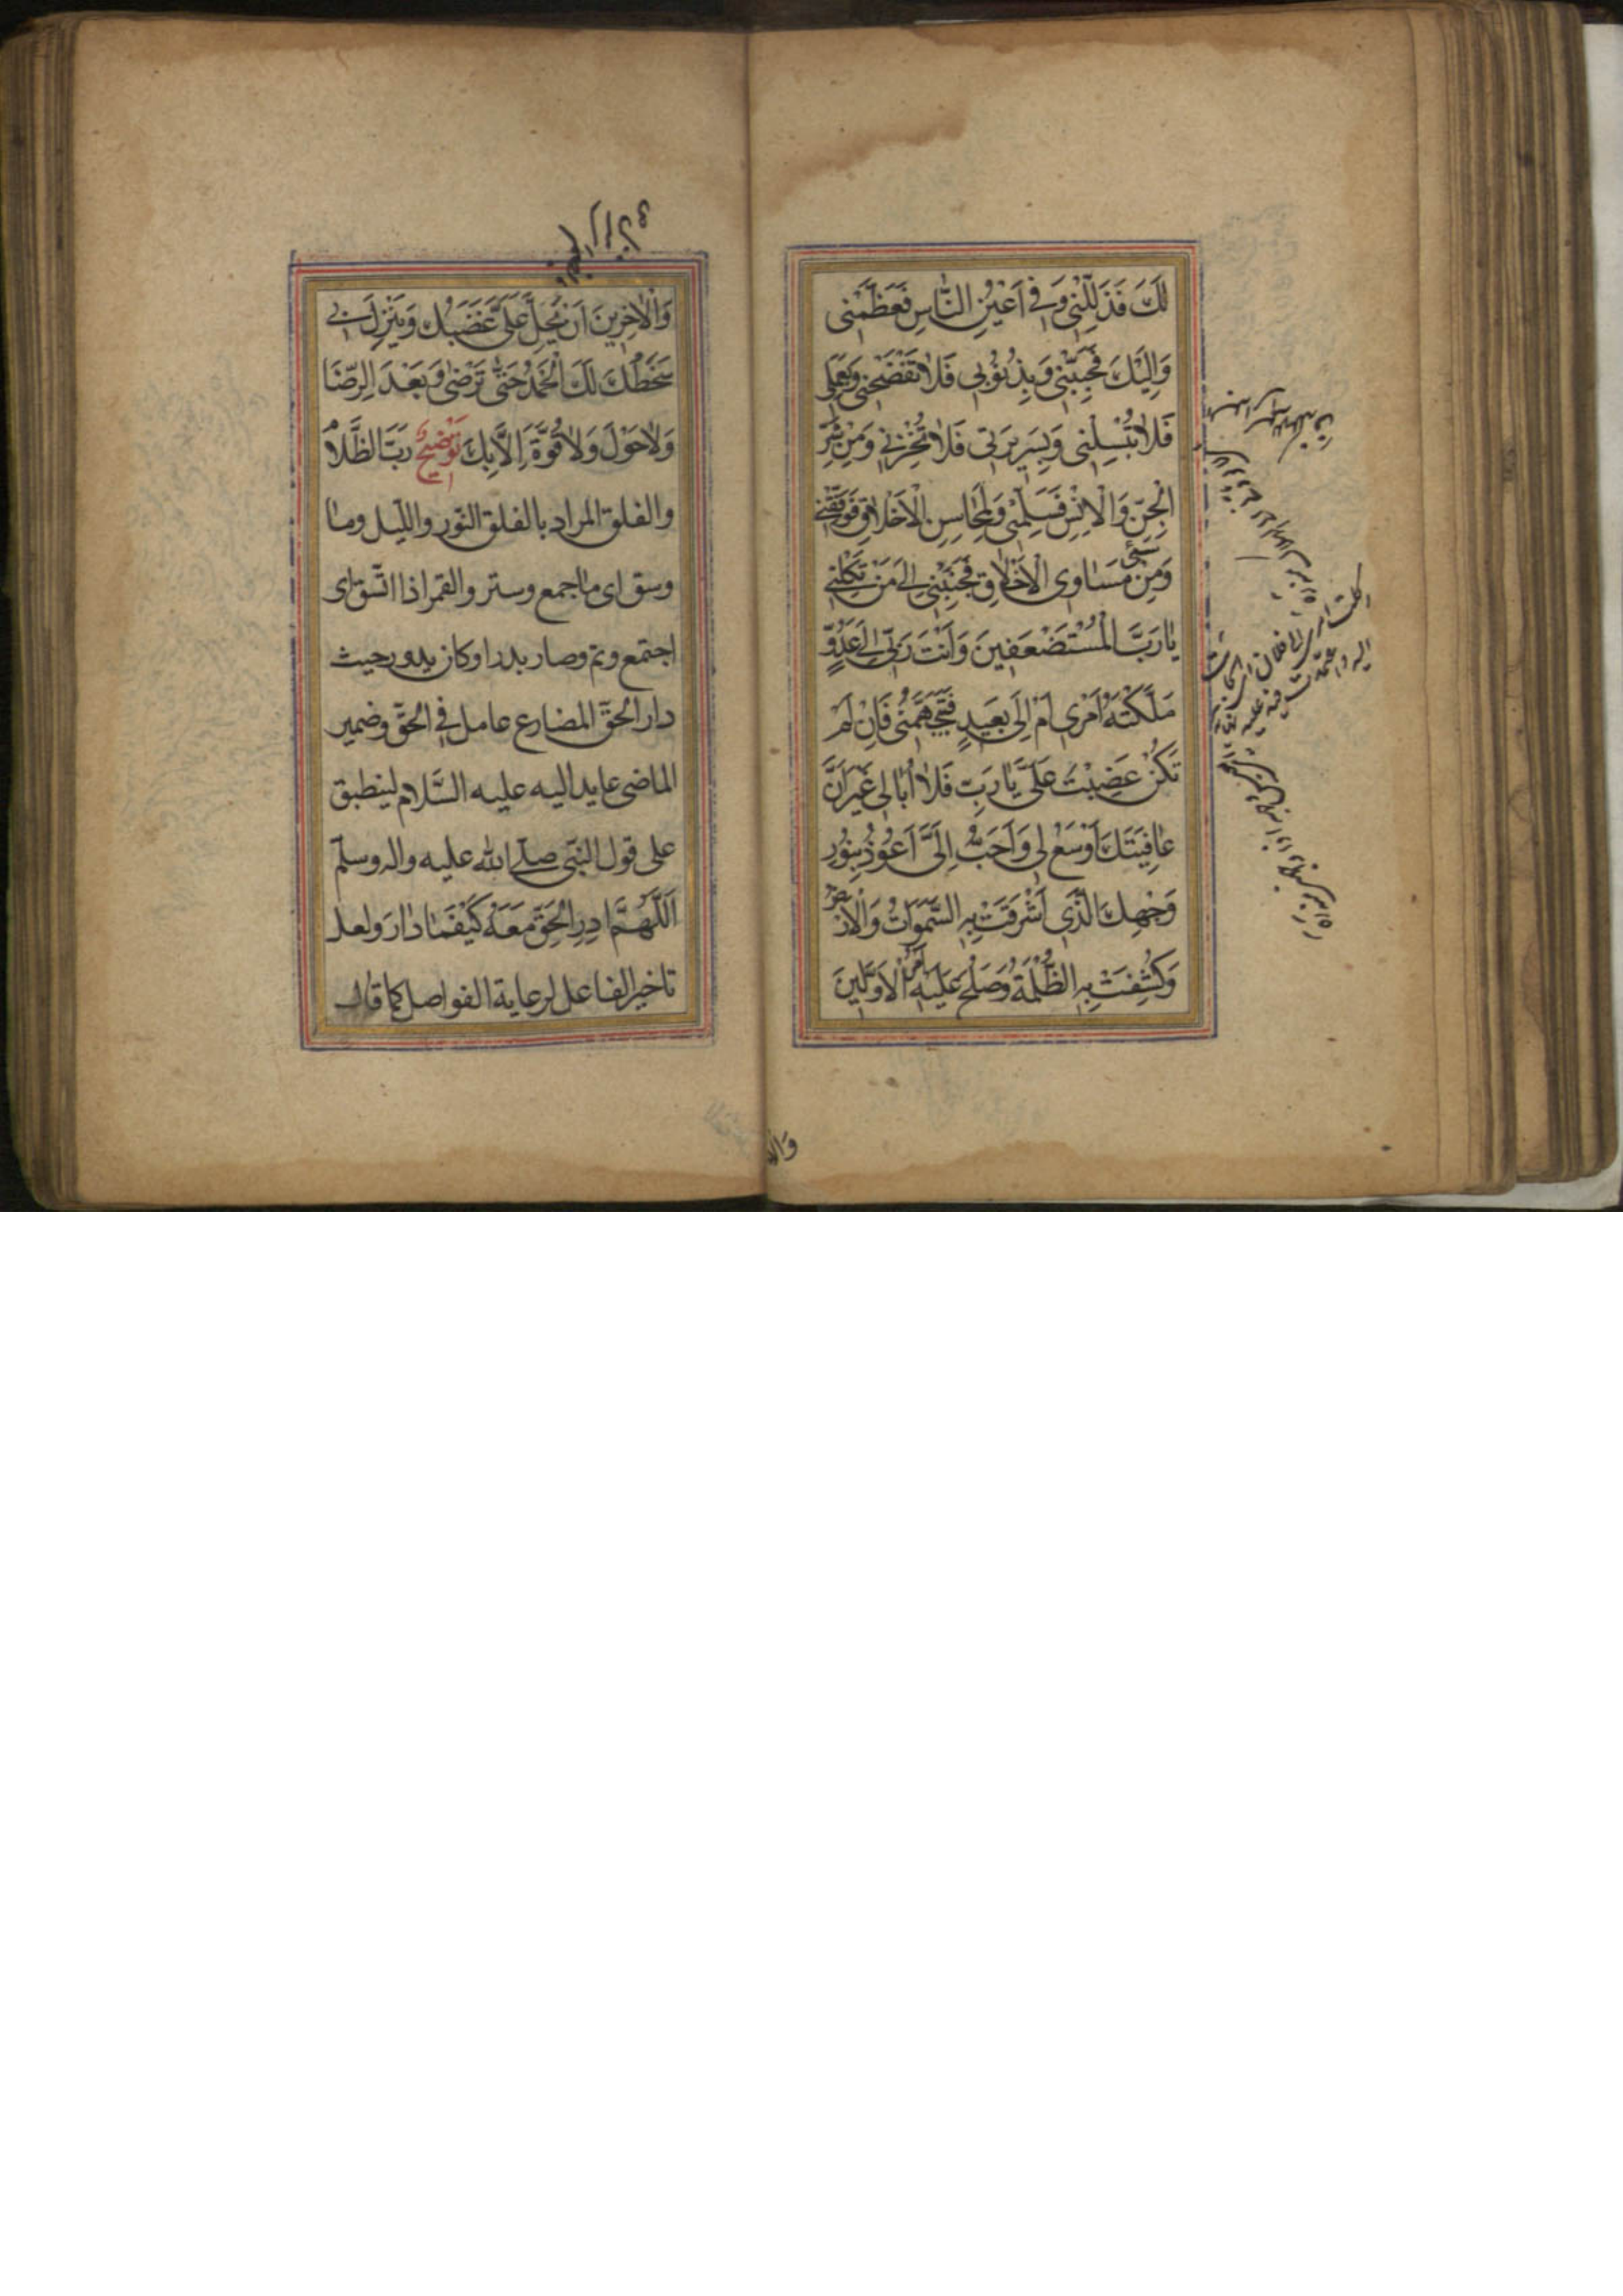 لَكَ فَذَلِّلْنِي وَفِي اَعْيُنِ النَّاسِ فَعَظِّمْنِي
وَاِلَيْكَ فَحَبِّبْنِي وَبِذُنُوبِي فَلَا تَفْضَحْنِي وَبِعَمَلِي
فَلَا تُبْسِلْنِي وَبِسَرِيرَتِي فَلَا تُخْزِنِي وَمِنْ شَرِّ
الْجِنِّ وَالْاِنْسِ فَسَلِّمْنِي وَلِمَحَاسِنِ الْاَخْلَاقِ فَوَفِّقْنِي
وَمِنْ مَسَاوِي الْاَخْلَاقِ فَجَنِّبْنِي اِلَى مَنْ تَكِلُنِي
يَا رَبَّ الْمُسْتَضْعَفِينَ وَاَنْتَ رَبِّي اِلَى عَدُوٍّ
مَلَّكْتَهُ اَمْرِي اَمْ اِلَى بَعِيدٍ فَيَتَجَهَّمُنِي فَاِنْ لَمْ
تَكُنْ غَضِبْتَ عَلَيَّ يَا رَبِّ فَلَا اُبَالِي غَيْرَ اَنَّ
عَافِيَتَكَ اَوْسَعُ لِي وَاَحَبُّ اِلَيَّ اَعُوذُ بِنُورِ
وَجْهِكَ الَّذِي اَشْرَقَتْ بِهِ السَّمٰوَاتُ وَالْاَرْضُ
وَكُشِفَتْ بِهِ الظُّلْمَةُ وَصَلُحَ عَلَيْهِ اَمْرُ الْاَوَّلِينَ
وَالْاٰخِرِينَ اَنْ يَحِلَّ عَلَيَّ غَضَبُكَ وَيَنْزِلَ بِي
سَخَطُكَ لَكَ الْحَمْدُ حَتّٰى تَرْضٰى وَبَعْدَ الرِّضَا
وَلَا حَوْلَ وَلَا قُوَّةَ اِلَّا بِكَ تَوْضِيحٌ رَبَّ الظَّلَامِ
والفلق المراد بالفلق النّور واللّيل وما
وسق اى ما جمع وستر والقمر اذا اتّسق اى
اجتمع وتم وصار بدرا وكان يدور حيث
دار الحقّ المضارع عامل فى الحقّ وضمير
الماضى عايد اليه عليه السَّلام لينطبق
على قول النبّى صلى الله عليه واله وسلّم
اَللّٰهُمَّ اَدِرِ الْحَقَّ مَعَهُ كَيْفَمَا دَارَ ولعل
تاخير الفاعل لرعاية الفواصل كما قال